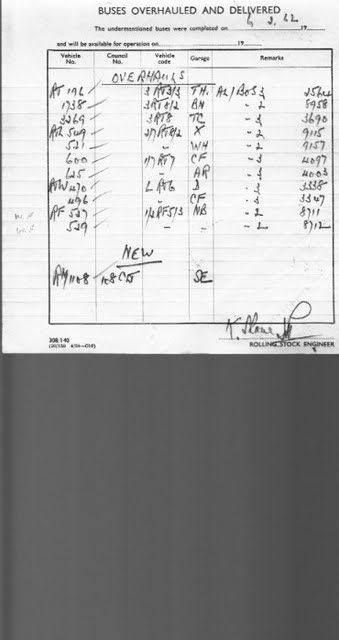 BUSES OVERHAULED AND DELIVERED
The undermentioned buses were completed on 6 2. 62 19
and will be available for operation on 19
Vehicle No. Council No. Vehicle code Garage Remarks
OVERHAULS
RT 196 3RT3/3 TH. AL/BOS 3 2564
1738 3RT8/2 BN - 2 5958
3269 3RT8 TC - 3 3690
549 X - 2 9115
521 " WH - 2 9157
600 CF - 3 4097
625 " AR - 3 4003
470 D - 3 3338
496 " CF - 3 3347
RF 527 NB - 2 8711
529 - - - 2 8712
NEW
RM 1108 108 CLT SE
308/140
ROLLING STOCK ENGINEER